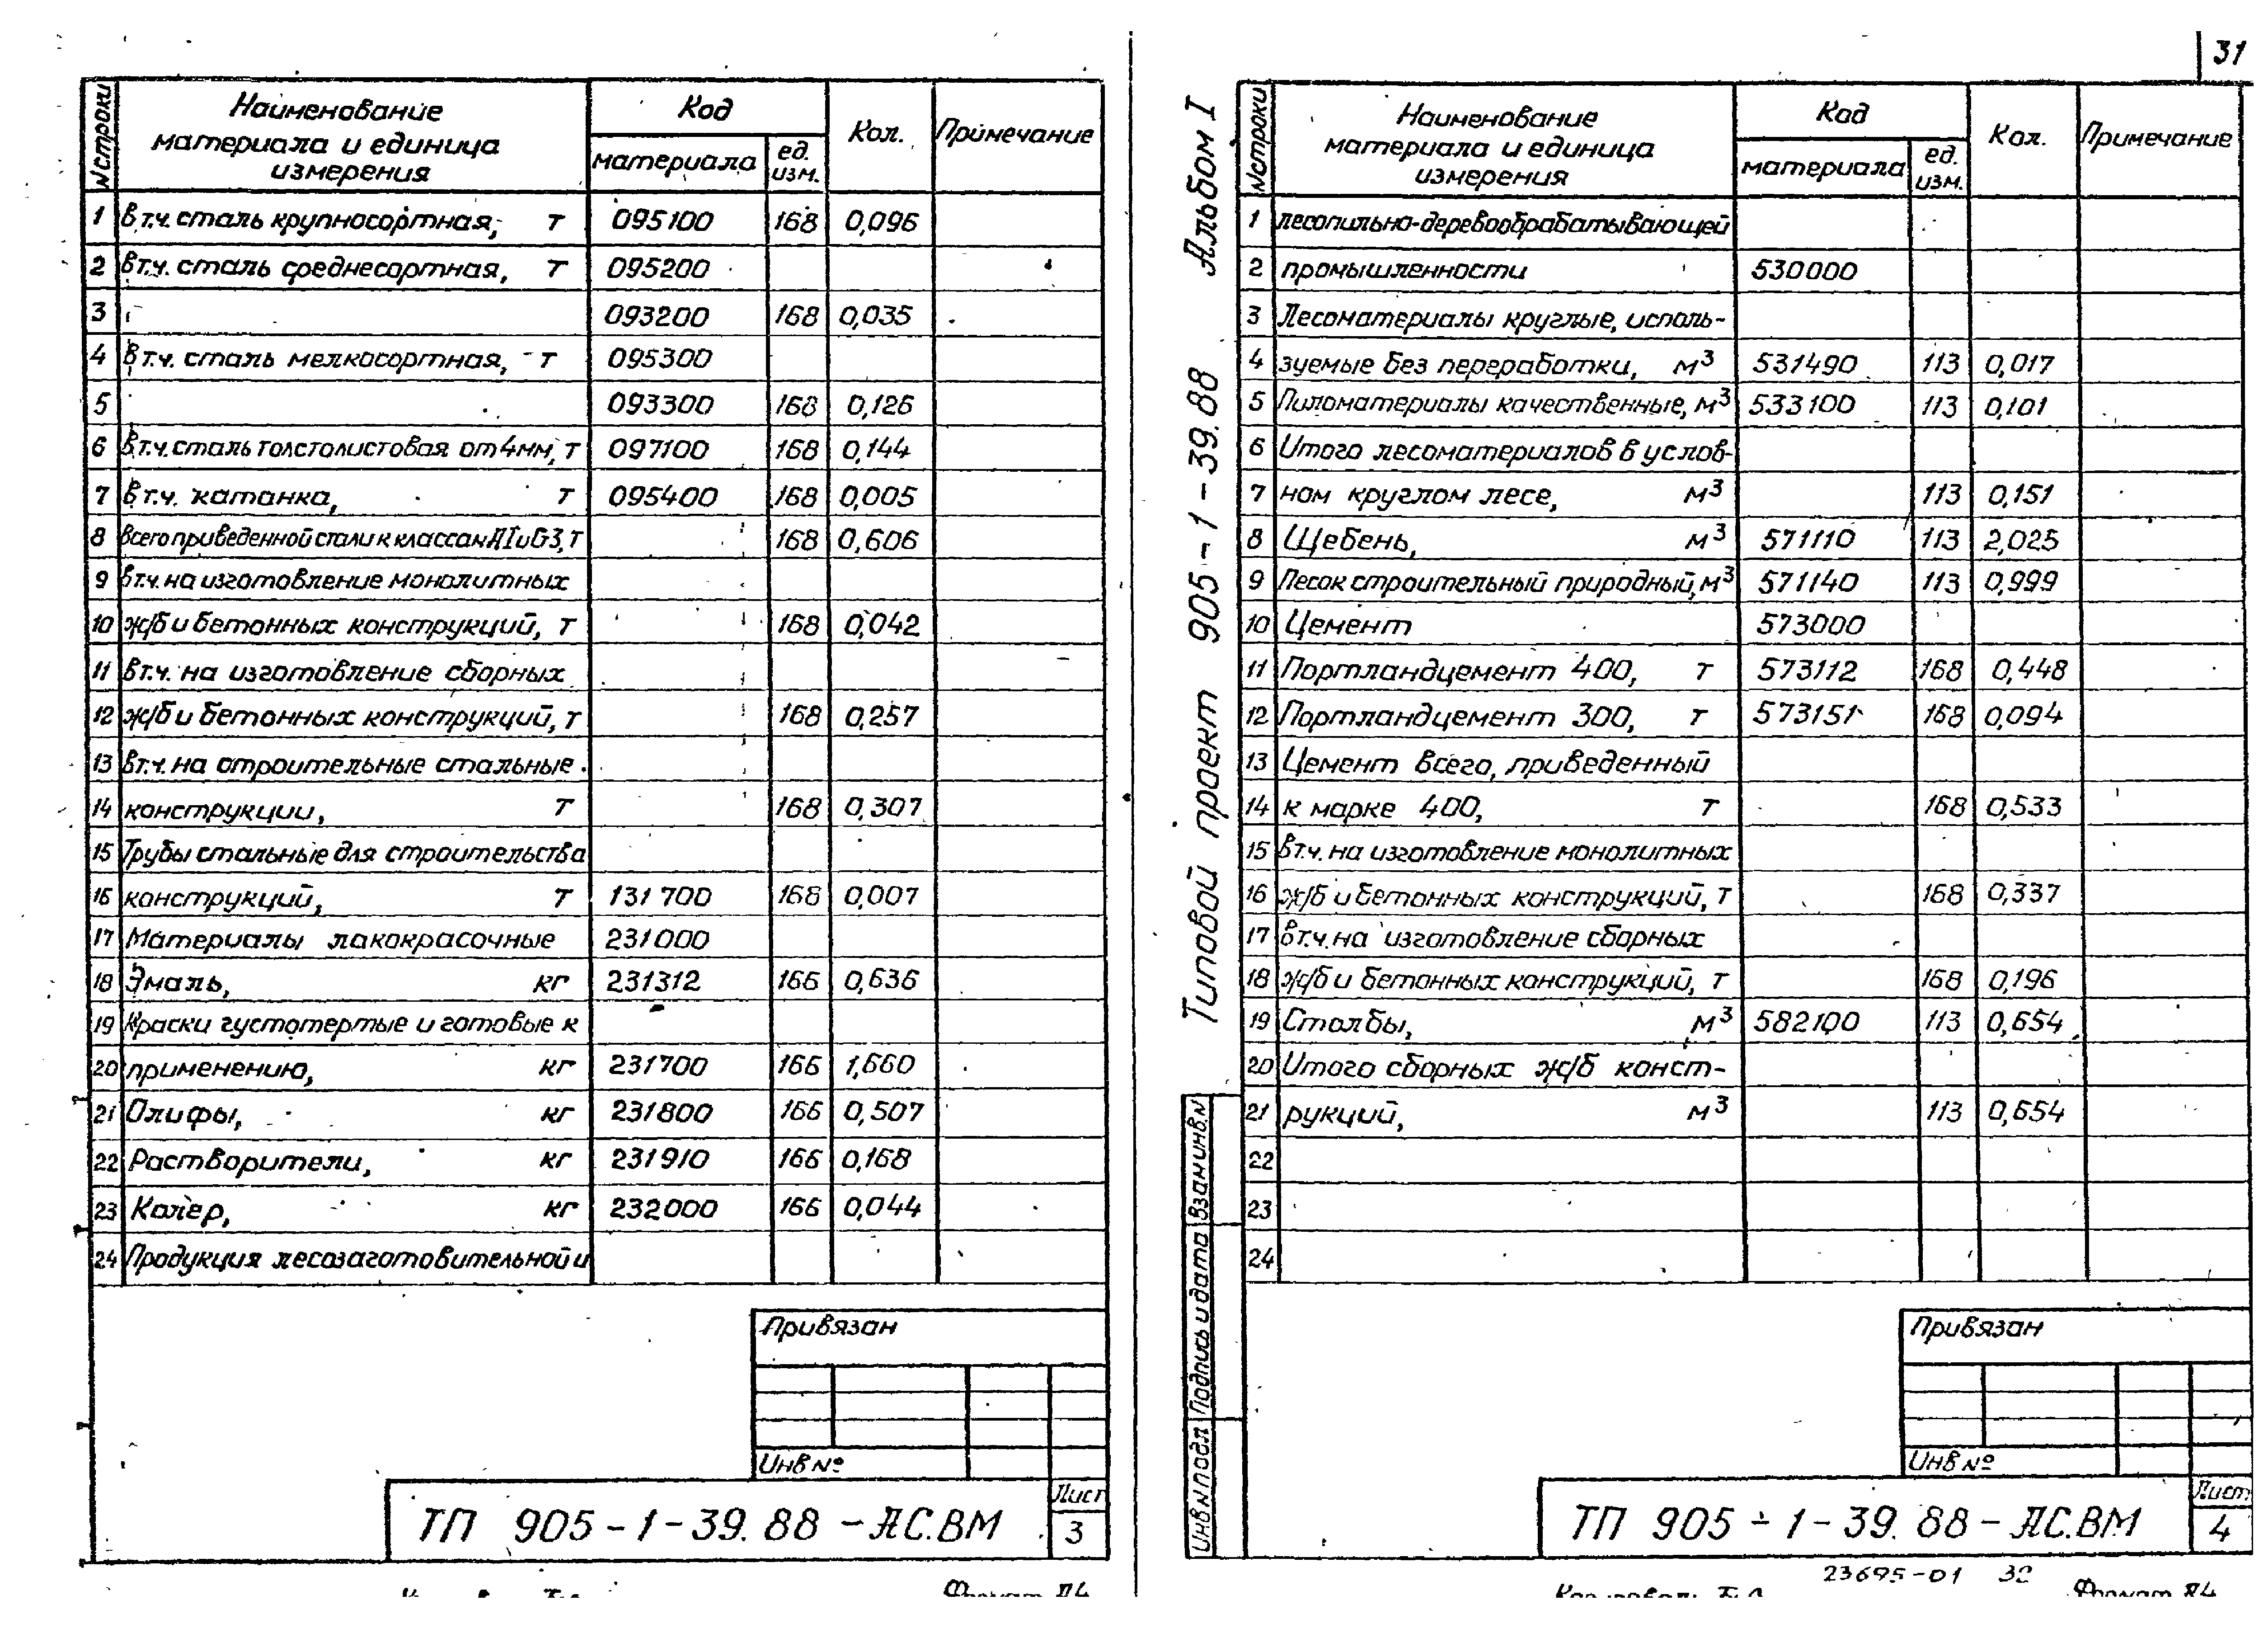 31
Nстроки
Наименование материала и единица измерения
Код
материала
ед. изм.
Кол.
Примечание
1 В т.ч. сталь крупносортная, т 095100 168 0,096
2 В т.ч. сталь среднесортная, т 095200
3 093200 168 0,035
4 В т.ч. сталь мелкосортная, т 095300
5 093300 168 0,126
6 В т.ч. сталь толстолистовая от 4мм, т 097100 168 0,144
7 В т.ч. катанка, т 095400 168 0,005
8 Всего приведенной стали к классам АI и С3, т 168 0,606
9 В т.ч. на изготовление монолитных
10 ж/б и бетонных конструкций, т 168 0,042
11 В т.ч. на изготовление сборных
12 ж/б и бетонных конструкций, т 168 0,257
13 В т.ч. на строительные стальные
14 конструкции, т 168 0,307
15 Трубы стальные для строительства
16 конструкций, т 131700 168 0,007
17 Материалы лакокрасочные 231000
18 Эмаль, кг 231312 166 0,636
19 Краски густотертые и готовые к
20 применению, кг 231700 166 1,660
21 Олифы, кг 231800 166 0,507
22 Растворители, кг 231910 166 0,168
23 Колер, кг 232000 166 0,044
24 Продукция лесозаготовительной и
Привязан
Инв №
ТП 905-1-39.88-АС.ВМ
Лист
3
Формат А4
Типовой проект 905-1-39.88 Альбом I
Nстроки
Наименование материала и единица измерения
Код
материала
ед. изм.
Кол.
Примечание
1 лесопильно-деревообрабатывающей
2 промышленности 530000
3 Лесоматериалы круглые, исполь-
4 зуемые без переработки, м³ 531490 113 0,017
5 Пиломатериалы качественные, м³ 533100 113 0,101
6 Итого лесоматериалов в услов-
7 ном круглом лесе, м³ 113 0,151
8 Щебень, м³ 571110 113 2,025
9 Песок строительный природный, м³ 571140 113 0,999
10 Цемент 573000
11 Портландцемент 400, т 573112 168 0,448
12 Портландцемент 300, т 573151 168 0,094
13 Цемент всего, приведенный
14 к марке 400, т 168 0,533
15 В т.ч. на изготовление монолитных
16 ж/б и бетонных конструкций, т 168 0,337
17 В т.ч. на изготовление сборных
18 ж/б и бетонных конструкций, т 168 0,196
19 Столбы, м³ 582100 113 0,654
20 Итого сборных ж/б конст-
21 рукций, м³ 113 0,654
22
23
24
Взам инв. N
Подпись и дата
Инв N подл
Привязан
Инв №
ТП 905-1-39.88-АС.ВМ
Лист
4
23695-01 32
Формат А4